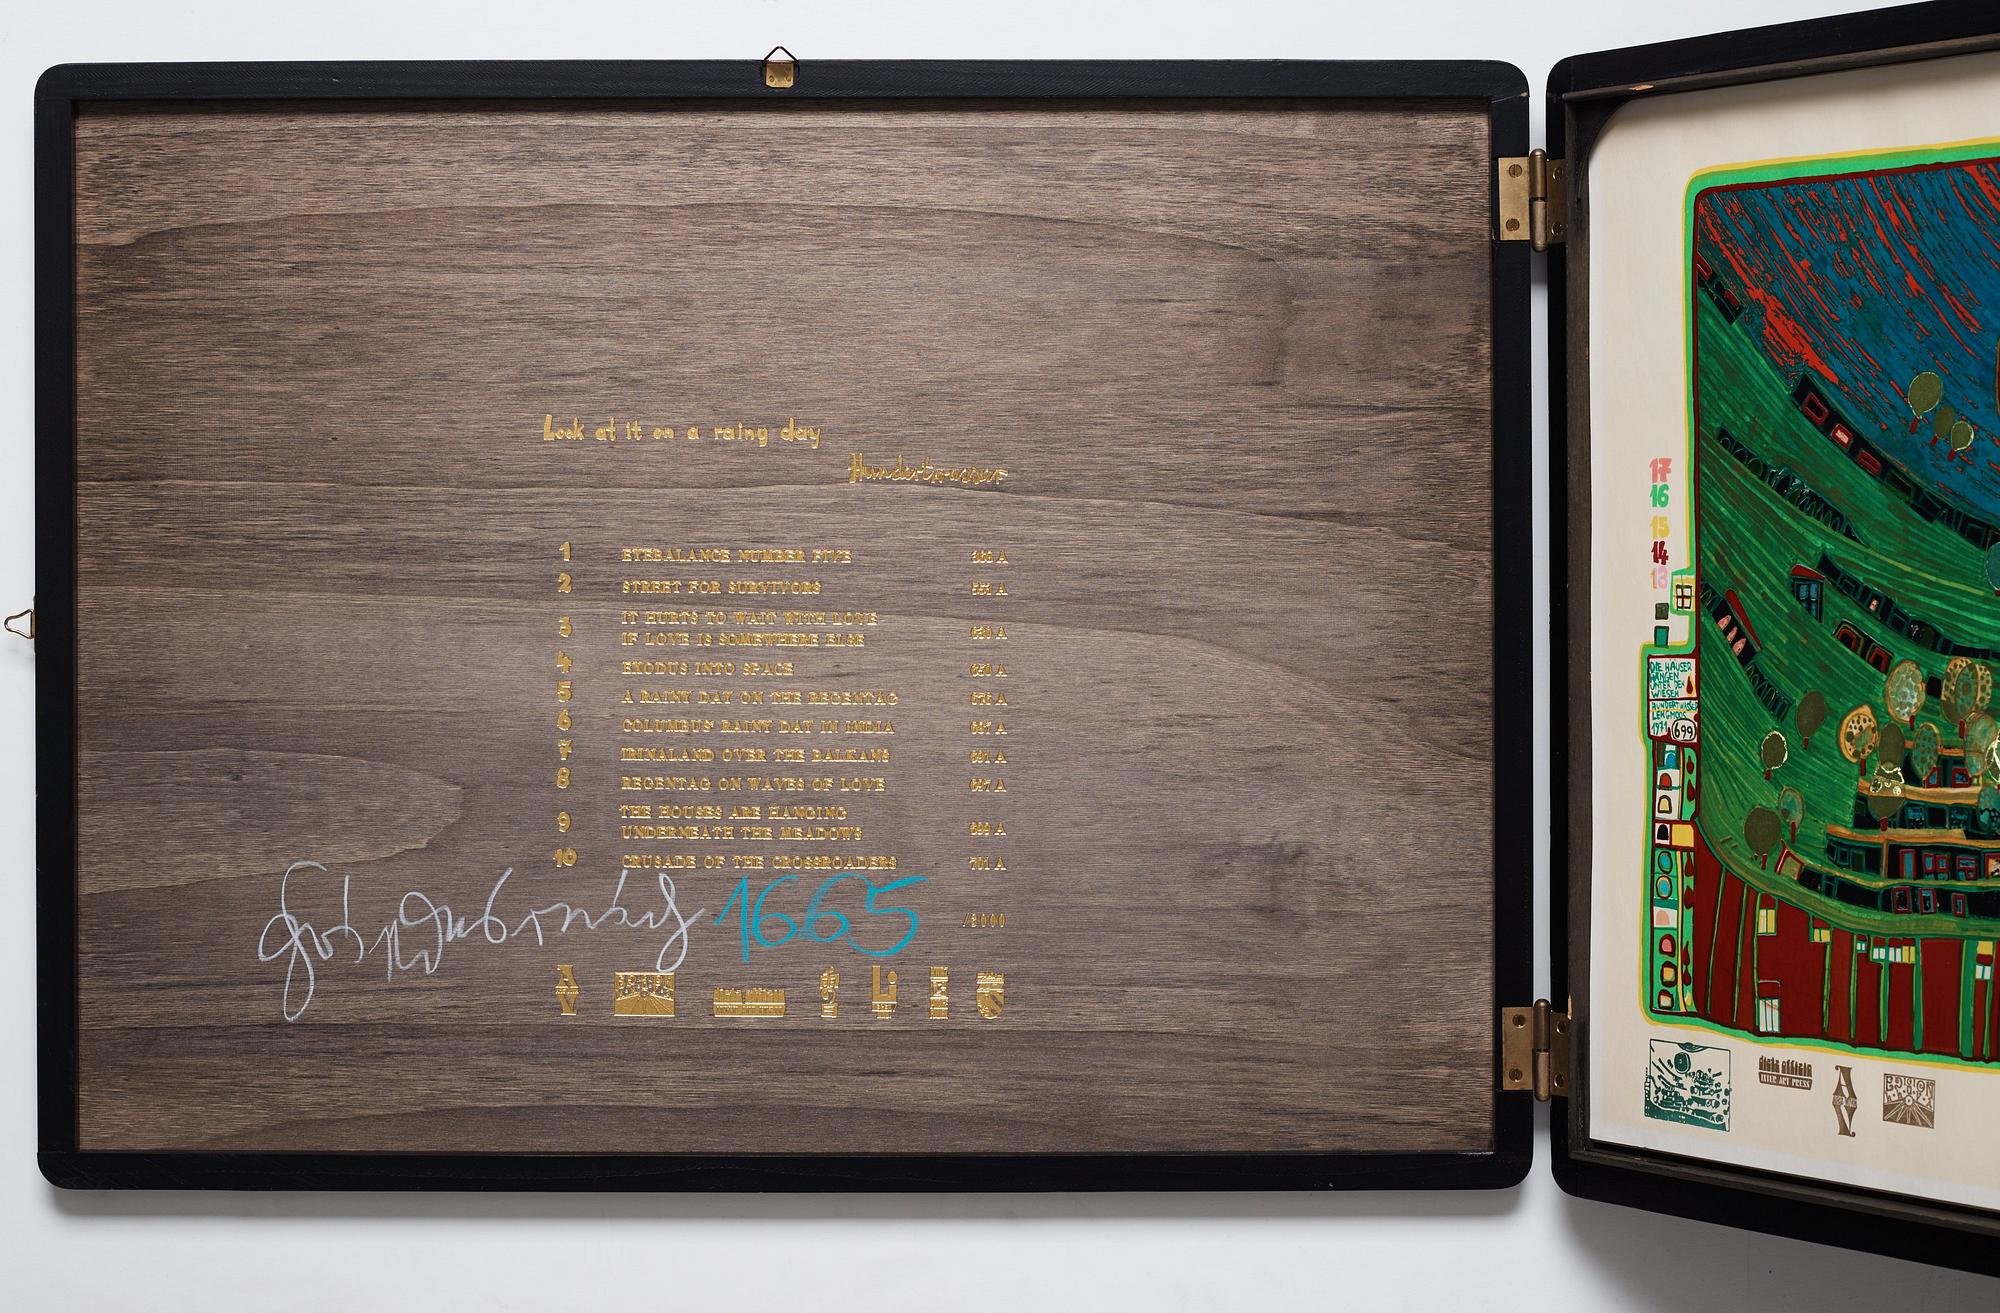 Look at it on a rainy day
Hundertwasser
1 EYEBALANCE NUMBER FIVE
2 STREET FOR SURVIVORS
3 IT HURTS TO WAIT WITH LOVE
IF LOVE IS SOMEWHERE ELSE
4 EXODUS INTO SPACE
5 A RAINY DAY ON THE REGENTAG
6 COLUMBUS' RAINY DAY IN INDIA
7 IRINALAND OVER THE BALKANS
8 REGENTAG ON WAVES OF LOVE 697 A
9 THE HOUSES ARE HANGING
UNDERNEATH THE MEADOWS 699 A
10 CRUSADE OF THE CROSSROADERS 701 A
1665 /3000
17
16
15
14
13
DIE HÄUSER
HÄNGEN
UNTER DEN
WIESEN
LENGMOOS
1971 699
dietz offizin
INTER ART PRESS